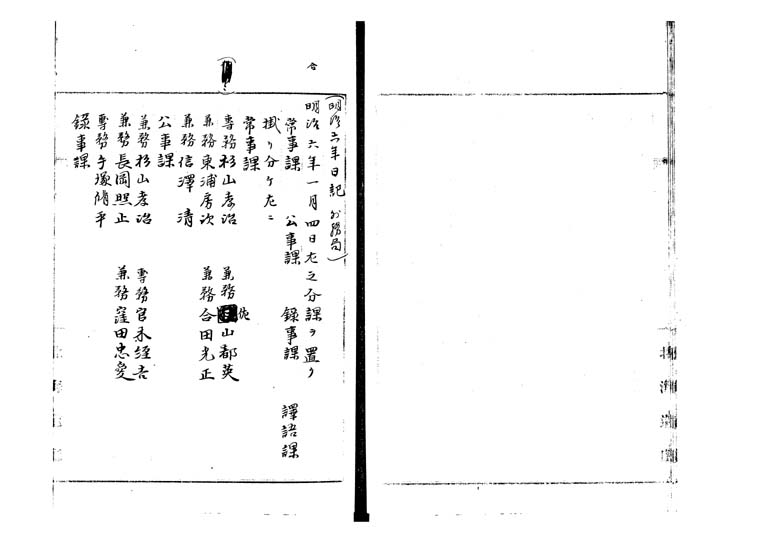 合
(明治六年日記 外務局)
明治六年一月四日左之分課ヲ置ク
常事課 公事課 録事課 譯語課
掛リ分ケ左ニ
常事課
專務杉山孝治 兼務 山都英
兼務東浦房次 兼務合田光正
兼務信澤清
公事課
兼務杉山孝治 專務官禾經吉
兼務長岡熙正 兼務窪田忠愛
專務手塚 平
録事課